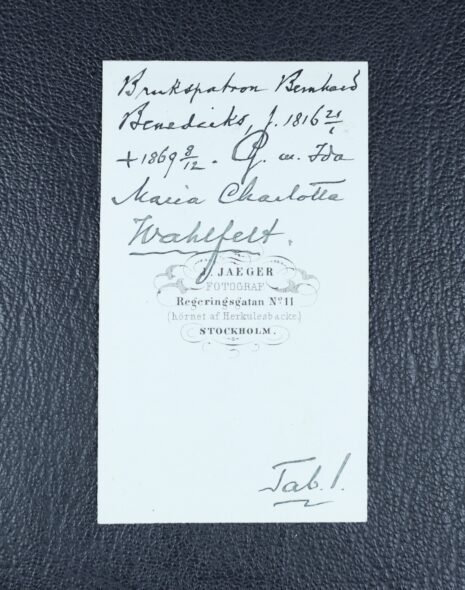 Brukspatron Bernhard
Benedicks, f. 1816 21/1
+ 1869 8/12. G. m. Ida
Maria Charlotta
Wahlfelt.
J. JAEGER
FOTOGRAF
Regeringsgatan No 11
(hörnet af Herkulesbacke)
STOCKHOLM.
Tab. 1.